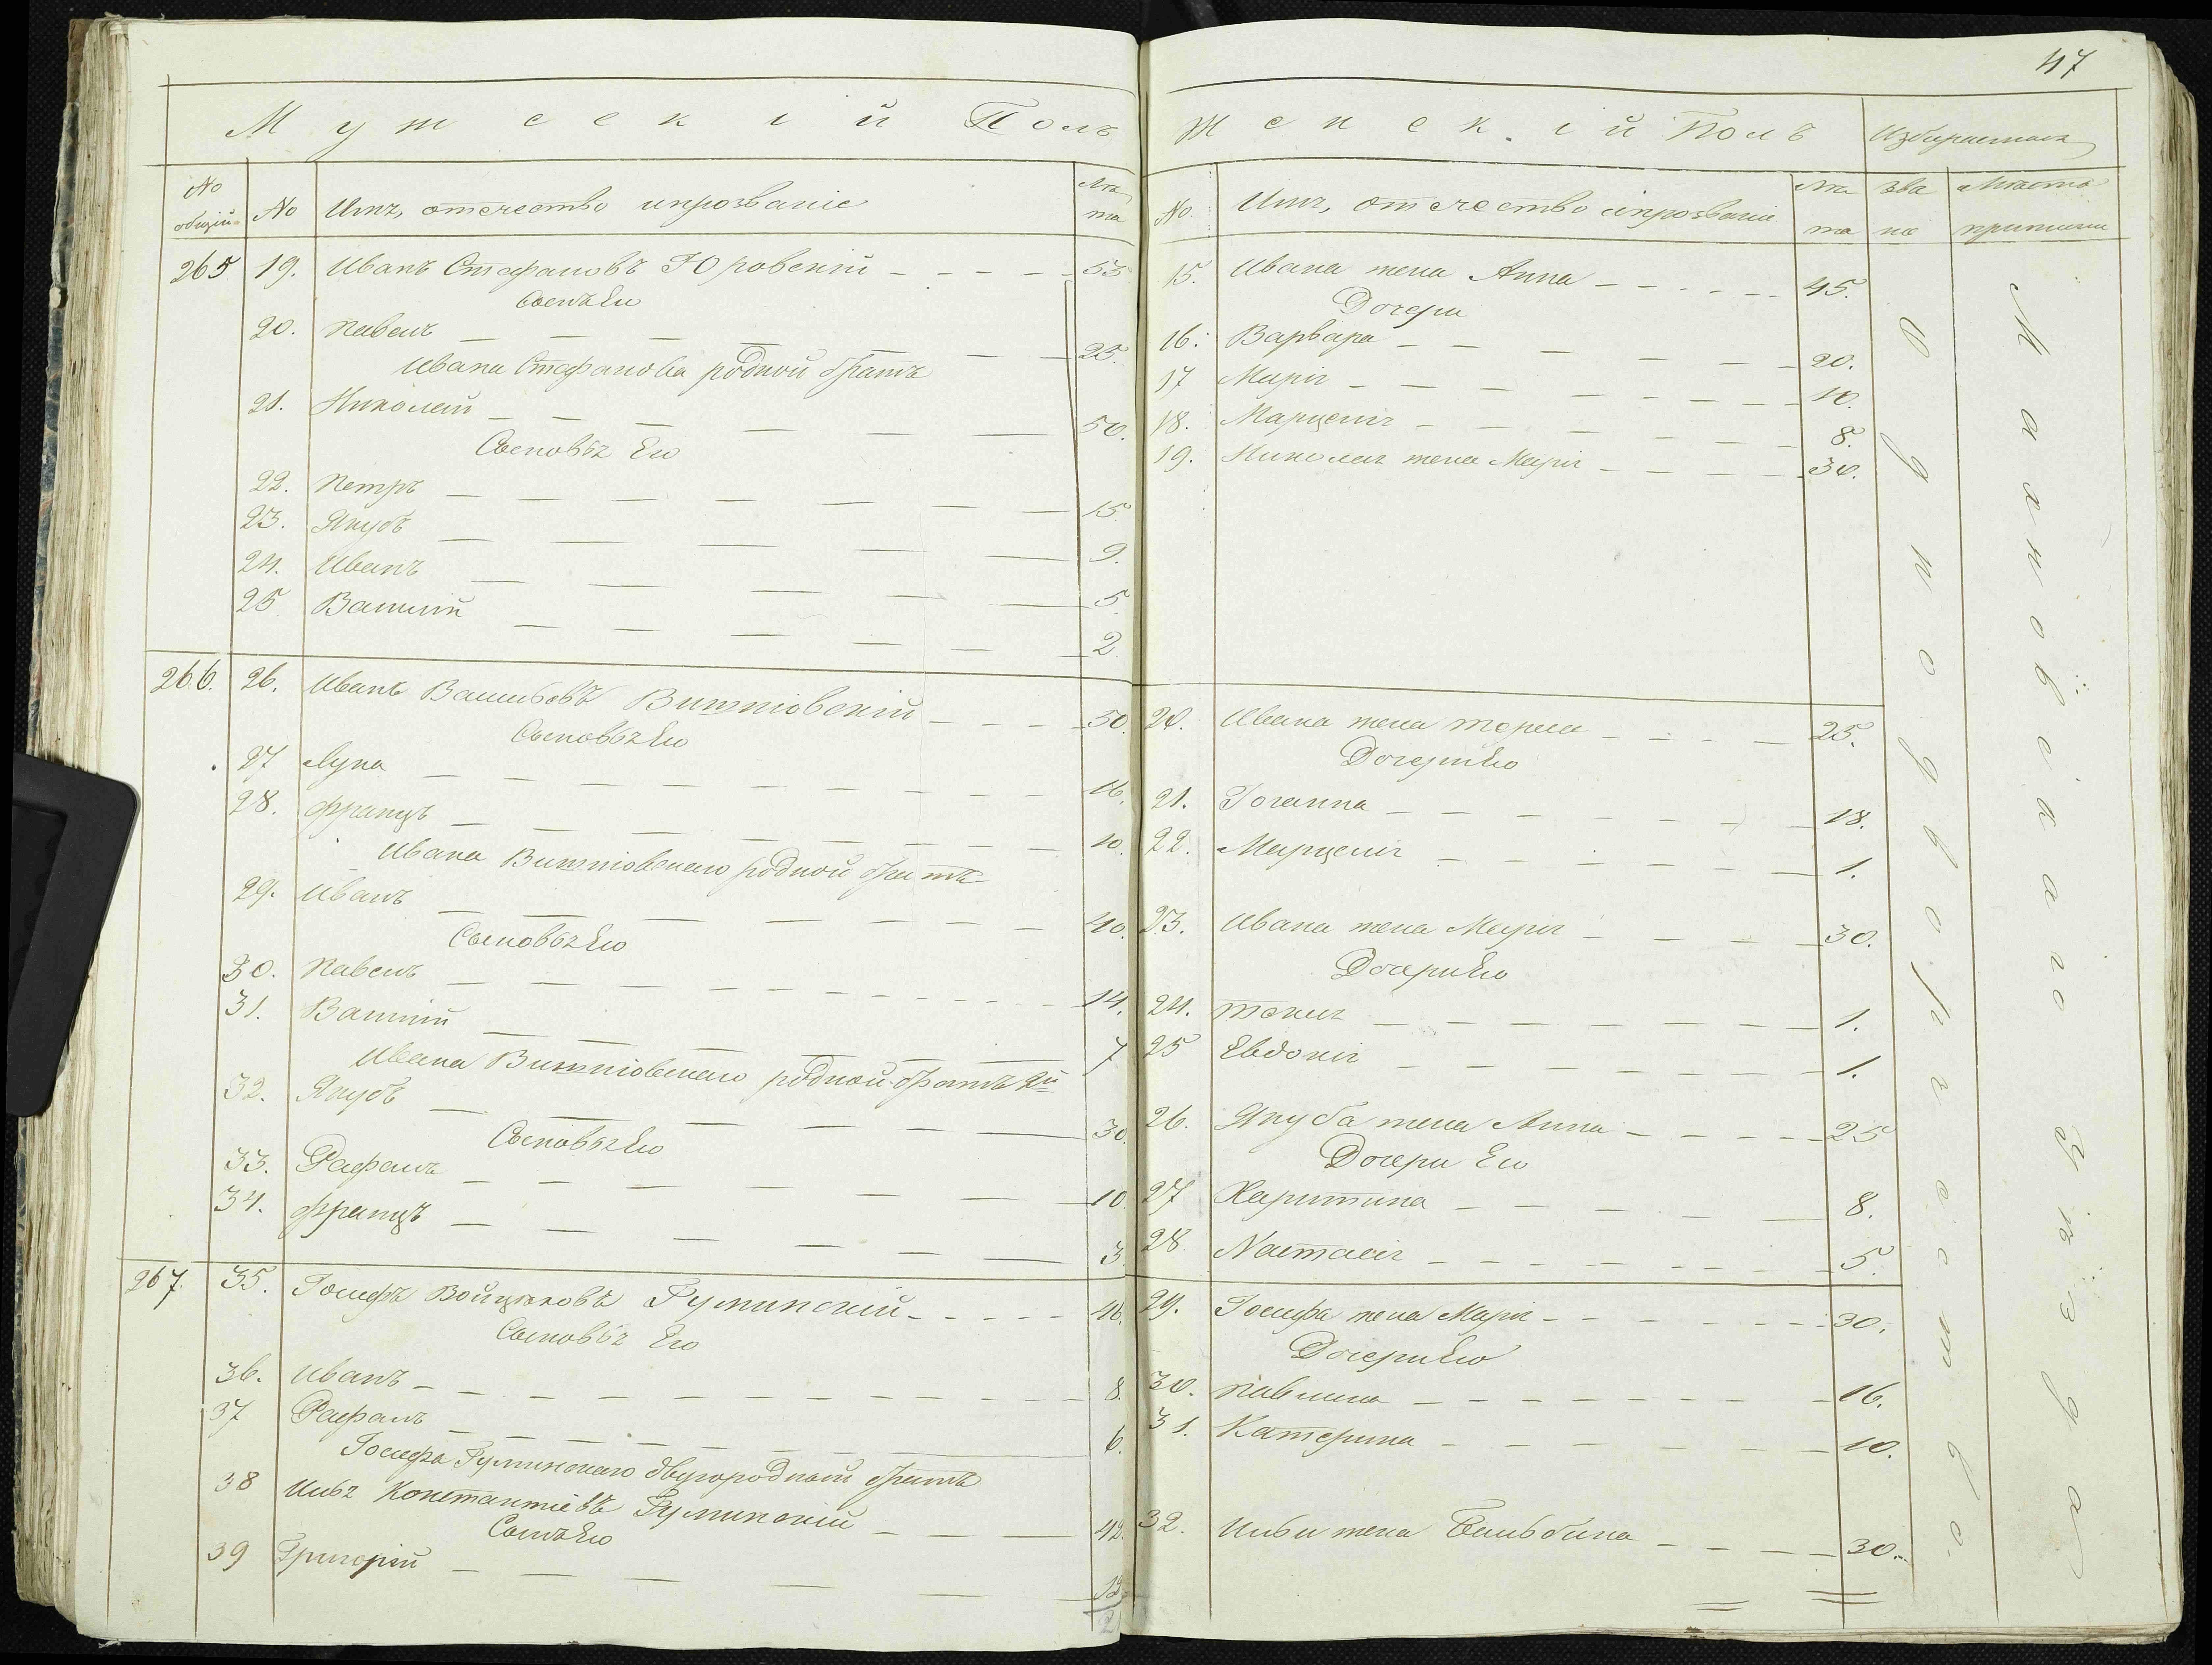 47
Мужескій Полъ
№ общій
№
Имя, отечество и прозваніе
Лѣта
265 19. Иванъ Стефановъ Юровскій 53
Сынъ Его
20. Павелъ 25.
Ивана Стефанова родной братъ
21. Николай 50.
Сыновья Его
22. Петръ 15.
23. Якубъ 9.
24. Иванъ 5
25 Василій 2.
266. 26. Иванъ Васильевъ 50.
Сыновья Его
27 Лука 16.
28. Францъ 10.
Ивана родной братъ
29. Иванъ 40.
Сыновья Его
30. Павелъ 14.
31. Василій 7
Ивана родной братъ 2й
32. Якубъ 30.
Сыновья Его
33. Рафалъ 10
34. Францъ 3
267. 35. Іосифъ Войцѣховъ Руминскій 46.
Сыновья Его
36. Иванъ 8.
37 Рафалъ 6.
Іосифа Руминскаго двуюродный братъ
38 Илья Константіевъ Руминскій 42.
Сынъ Его
39 Григорій 12.
Женскій Полъ
№
Имя, отечество и прозваніе
Лѣта
15. Ивана жена Анна 45.
Дочери
16. Варвара 20.
17 Марія 10.
18. Марцелія 8.
19. Николая жена Марія 30.
20. Ивана жена Тереса 25.
Дочери Его
21. Іоганна 18.
22. Марцелія 1.
23. Ивана жена Марія 30.
Дочери Его
24. Текля 1.
25 Евдокія 1.
26. Якуба жена Анна 25
Дочери Его
27 Харитина 8.
28. Настасія 5.
29. Іосифа жена Марія 30.
Дочери Его
30. Павлина 16.
31. Катерина 10.
32. Ильи жена Бальбина 30.
Избираемыя
Званіе
Мѣсто приписки
Однодворчество.
Махновскаго Уѣзда